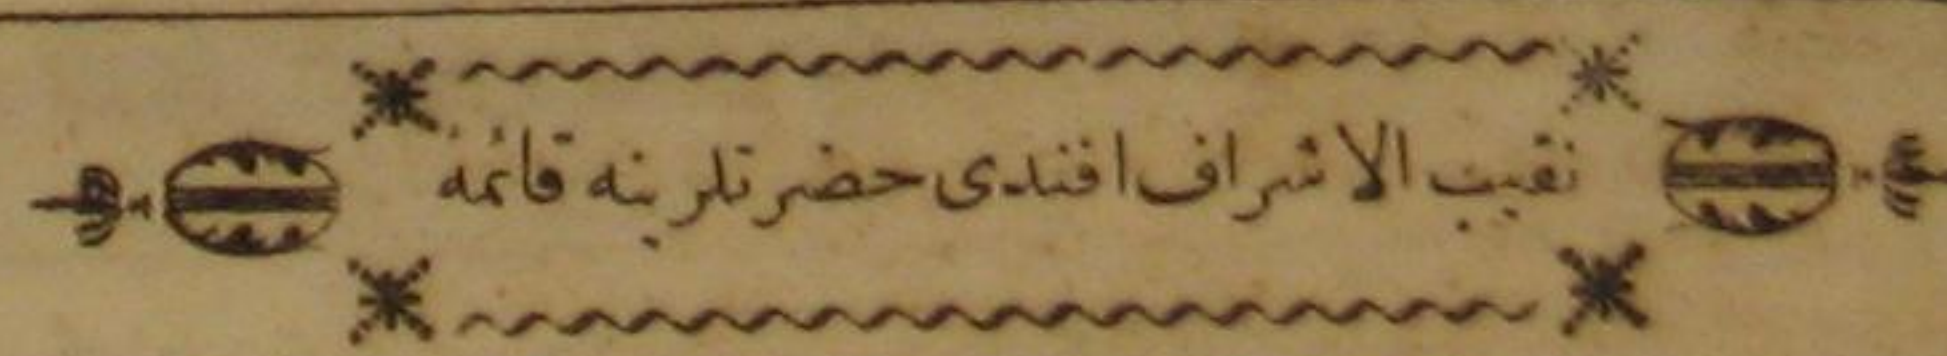 نقيب الاشراف افندى حضرتلرينه قائمه